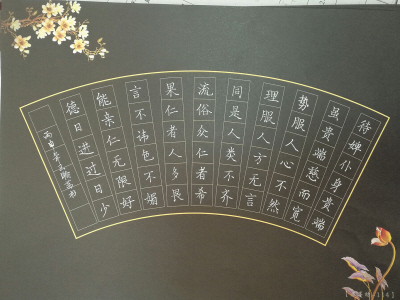 待婢仆身贵端
虽贵端慈而宽
势服人心不然
理服人方无言
同是人类不齐
流俗众仁者希
果仁者人多畏
言不讳色不媚
能亲仁无限好
德日进过日少